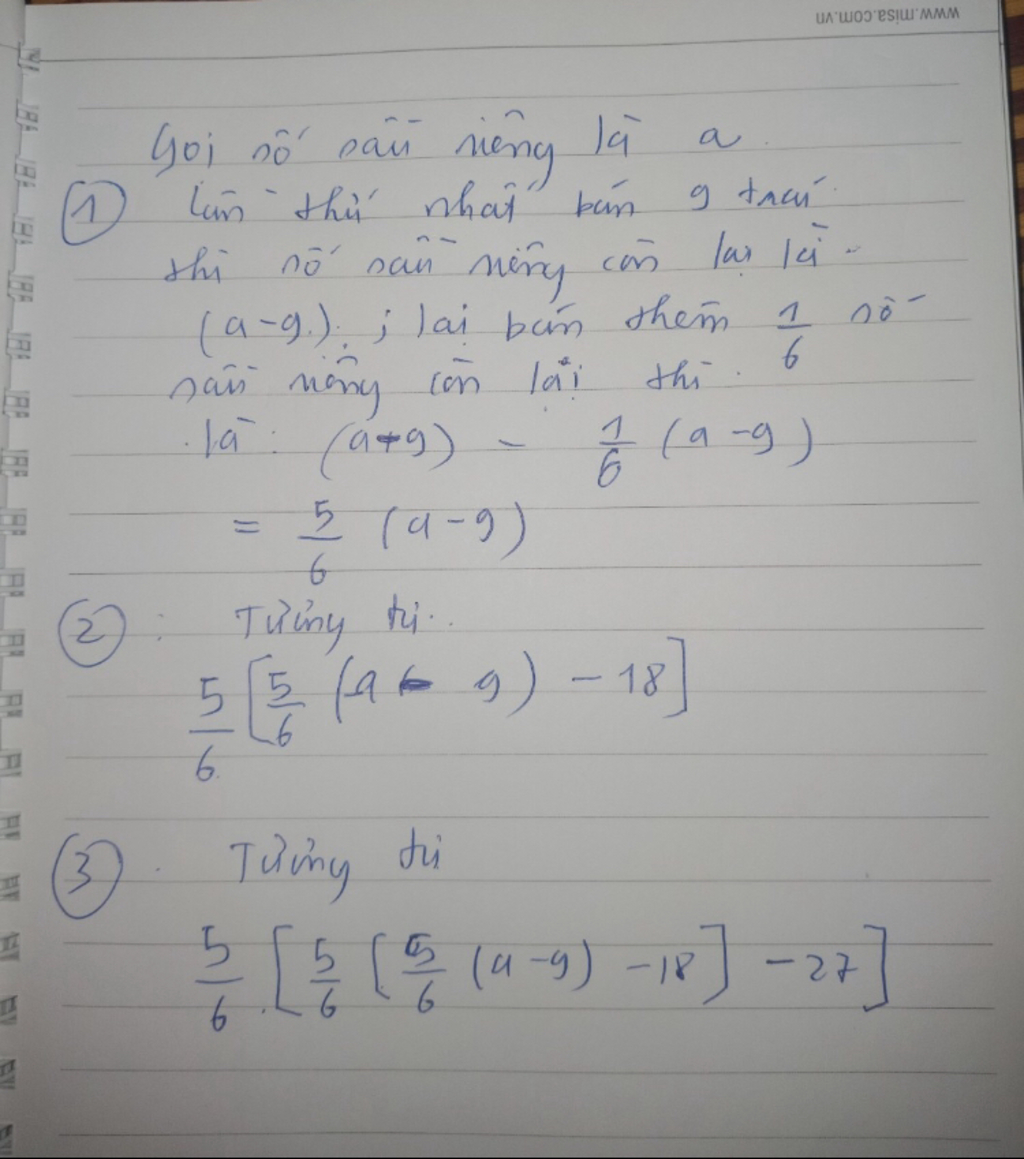 www.misa.com.vn
Gọi số sầu riêng là a
① Lần thứ nhất bán 9 trái
thì số sầu riêng còn lại là
(a-9); lại bán thêm 1/6 số
sầu riêng còn lại thì
là: (a-9) - 1/6 (a-9)
= 5/6 (a-9)
② : Tương tự.
5/6 [5/6 (a - 9) - 18]
③ . Tương tự
5/6 . [5/6 [5/6 (a-9) -18] -27]